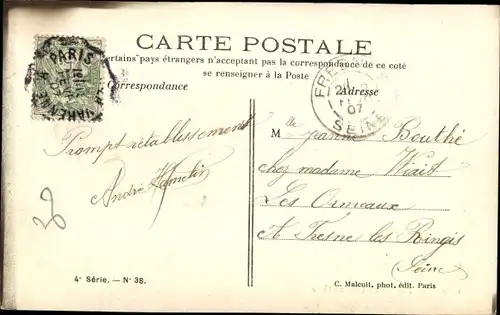 CARTE POSTALE
Certains pays étrangers n'acceptant pas la correspondance de ce coté
se renseigner à la Poste
Correspondance
Adresse
PARIS
VARENNE
FRES
07
SEINE
Prompt rétablissement
André
Mlle Jeanne Bouthé
chez madame Wiait
Les Ormeaux
A Fresne les Rungis
Seine
28
4e Série. — No 38.
C. Malcuit, phot. édit. Paris